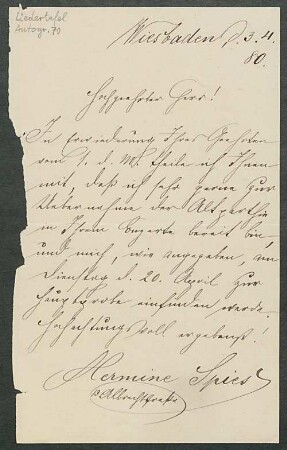 Liedertafel
Autogr. 70
Wiesbaden d. 3. 4.
80.
Hochgeehrter Herr!
In Erwiederung Ihres Geehrten
vom 1. d. M. theile ich Ihnen
mit, daß ich sehr gerne zur
Uebernahme der Altparthie
in Ihrem Conzerte bereit bin
und mich, wie angegeben, am
Dienstag d. 20. April zur
Hauptprobe einfinden werde.
Hochachtungsvoll ergebenst!
Hermine Spies
Albrechtstr.